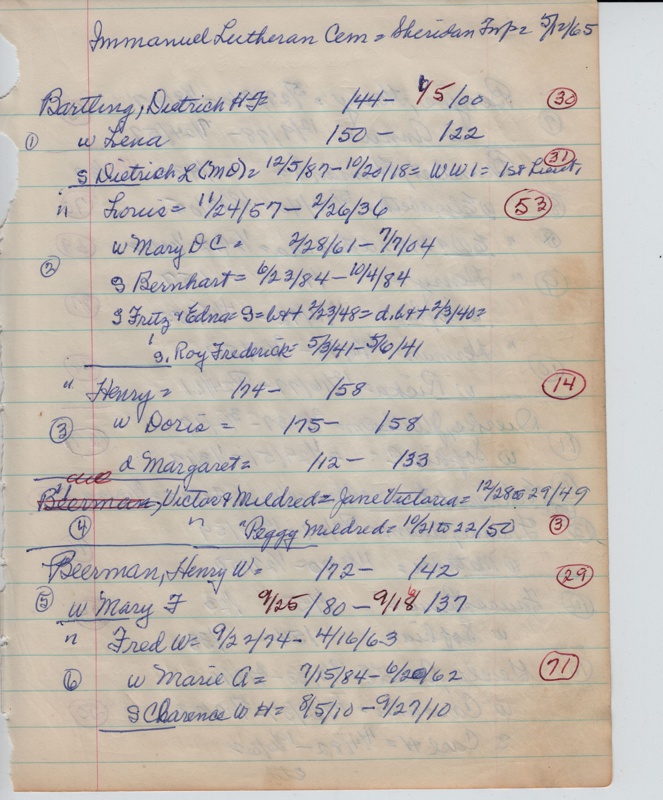 Immanuel Lutheran Cem = Sheridan Twp = 5/12/65
Bartling, Dietrich H F /44 - 1/5/00 30
1 w Lena /50 - /22
S Dietrich L (MD) = 12/5/87 - 10/20/18 = WW1 = 1st Lieut, 31
" Louis = 11/24/57 - 2/26/36 53
w Mary D C = 2/28/61 - 7/7/04
2 S Bernhart = 6/23/84 - 10/4/84
S Fritz & Edna = S = b&+ 2/23/48 = d, b&+ 2/3/40 =
S, Roy Frederick = 5/3/41 - 5/6/41
" Henry = /74 - /58 14
3 w Doris = /75 - /58
d Margaret = /12 - /33
Beerman, Victor & Mildred = Jane Victoria = 12/28 to 29/49
4 " " Peggy Mildred = 10/21 to 22/50 3
Beerman, Henry W = /72 - /42 29
5 w Mary F 9/25/80 - 9/18/37
" Fred W = 9/22/74 - 4/16/63
6 w Marie A = 7/15/84 - 6/20/62 71
S Clarence W H = 8/5/10 - 9/27/10